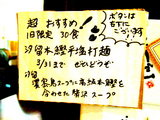 超 おすすめ!
1日限定 30食
ボタンは
右下に
ございます!
汐留本鰹手塩打麺
3/31まで どれどうぞ
汐留
濃密鳥スープに高級本鰹を
合わせた贅沢スープ